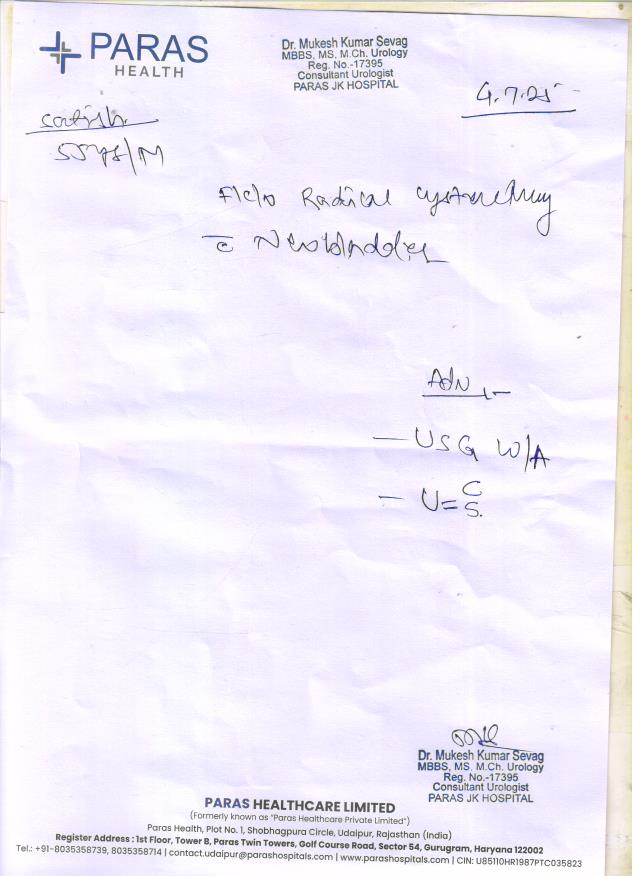 PARAS
HEALTH
Dr. Mukesh Kumar Sevag
MBBS, MS, M.Ch. Urology
Reg. No.-17395
Consultant Urologist
PARAS JK HOSPITAL
4.7.25
Satish
55 yrs/M
F/c/o Radical cystectomy
c̄ Neobladder
Adv
- USG W/A
- U = C/S.
Dr. Mukesh Kumar Sevag
MBBS, MS, M.Ch. Urology
Reg. No.-17395
Consultant Urologist
PARAS JK HOSPITAL
PARAS HEALTHCARE LIMITED
(Formerly known as "Paras Healthcare Private Limited")
Paras Health, Plot No. 1, Shobhagpura Circle, Udaipur, Rajasthan (India)
Register Address : 1st Floor, Tower B, Paras Twin Towers, Golf Course Road, Sector 54, Gurugram, Haryana 122002
Tel.: +91-8035358739, 8035358714 | contact.udaipur@parashospitals.com | www.parashospitals.com | CIN: U85110HR1987PTC035823